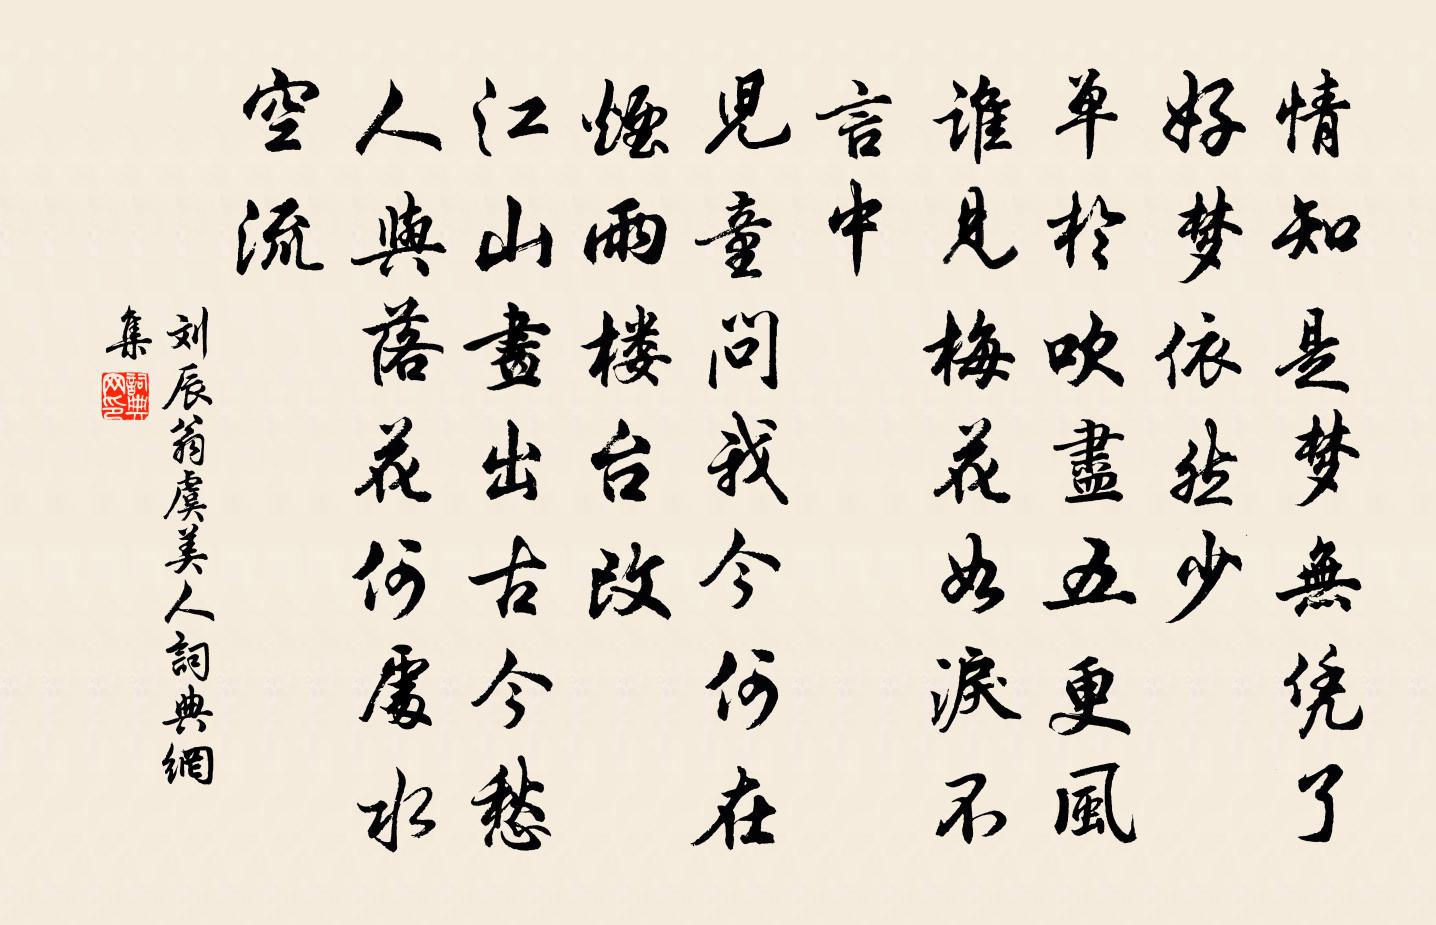 情知是梦無凭了
好梦依然少
单於吹盡五更風
誰見梅花如淚不
言中
児童問我今何在
煙雨楼台改
江山畫出古今愁
人與落花何處水
空流
刘辰翁虞美人詞典網
集
詞典網印